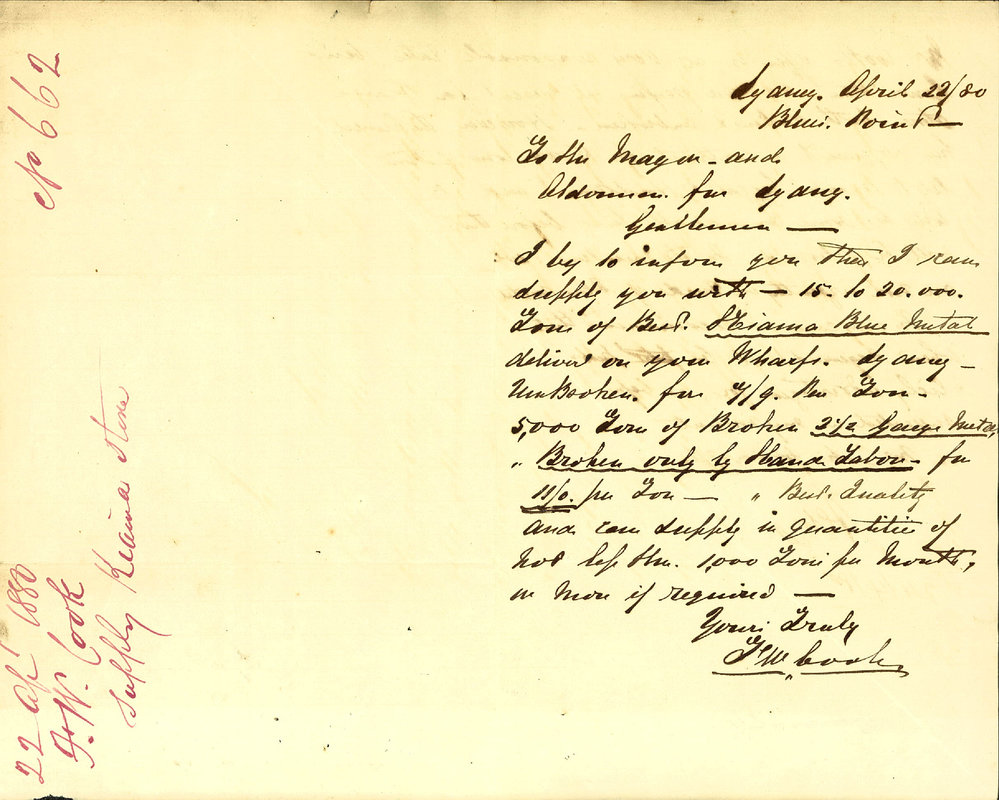 Sydney. April 22/80
Blues. Point —
To the Mayor - and
Aldermen for Sydney.
Gentlemen —
I beg to inform you that I can
supply you with — 15. to 20.000.
Tons of Best. Kiama Blue Metal
deliverd on your Wharfs. Sydney —
UnBroken. for 7/9. Per Ton -
5,000 Tons of Broken 2 1/2 Gauge Metal,
" Broken only by Hand Labor - for
11/0. per Ton — " Best. Quality
and can supply in quantities of
not less then. 1,000 Tons per Month,
or More if required —
Yours Truly
F W Cook
No 662
22 Apl 1880
F. W. Cook
Supply Kiama Stone